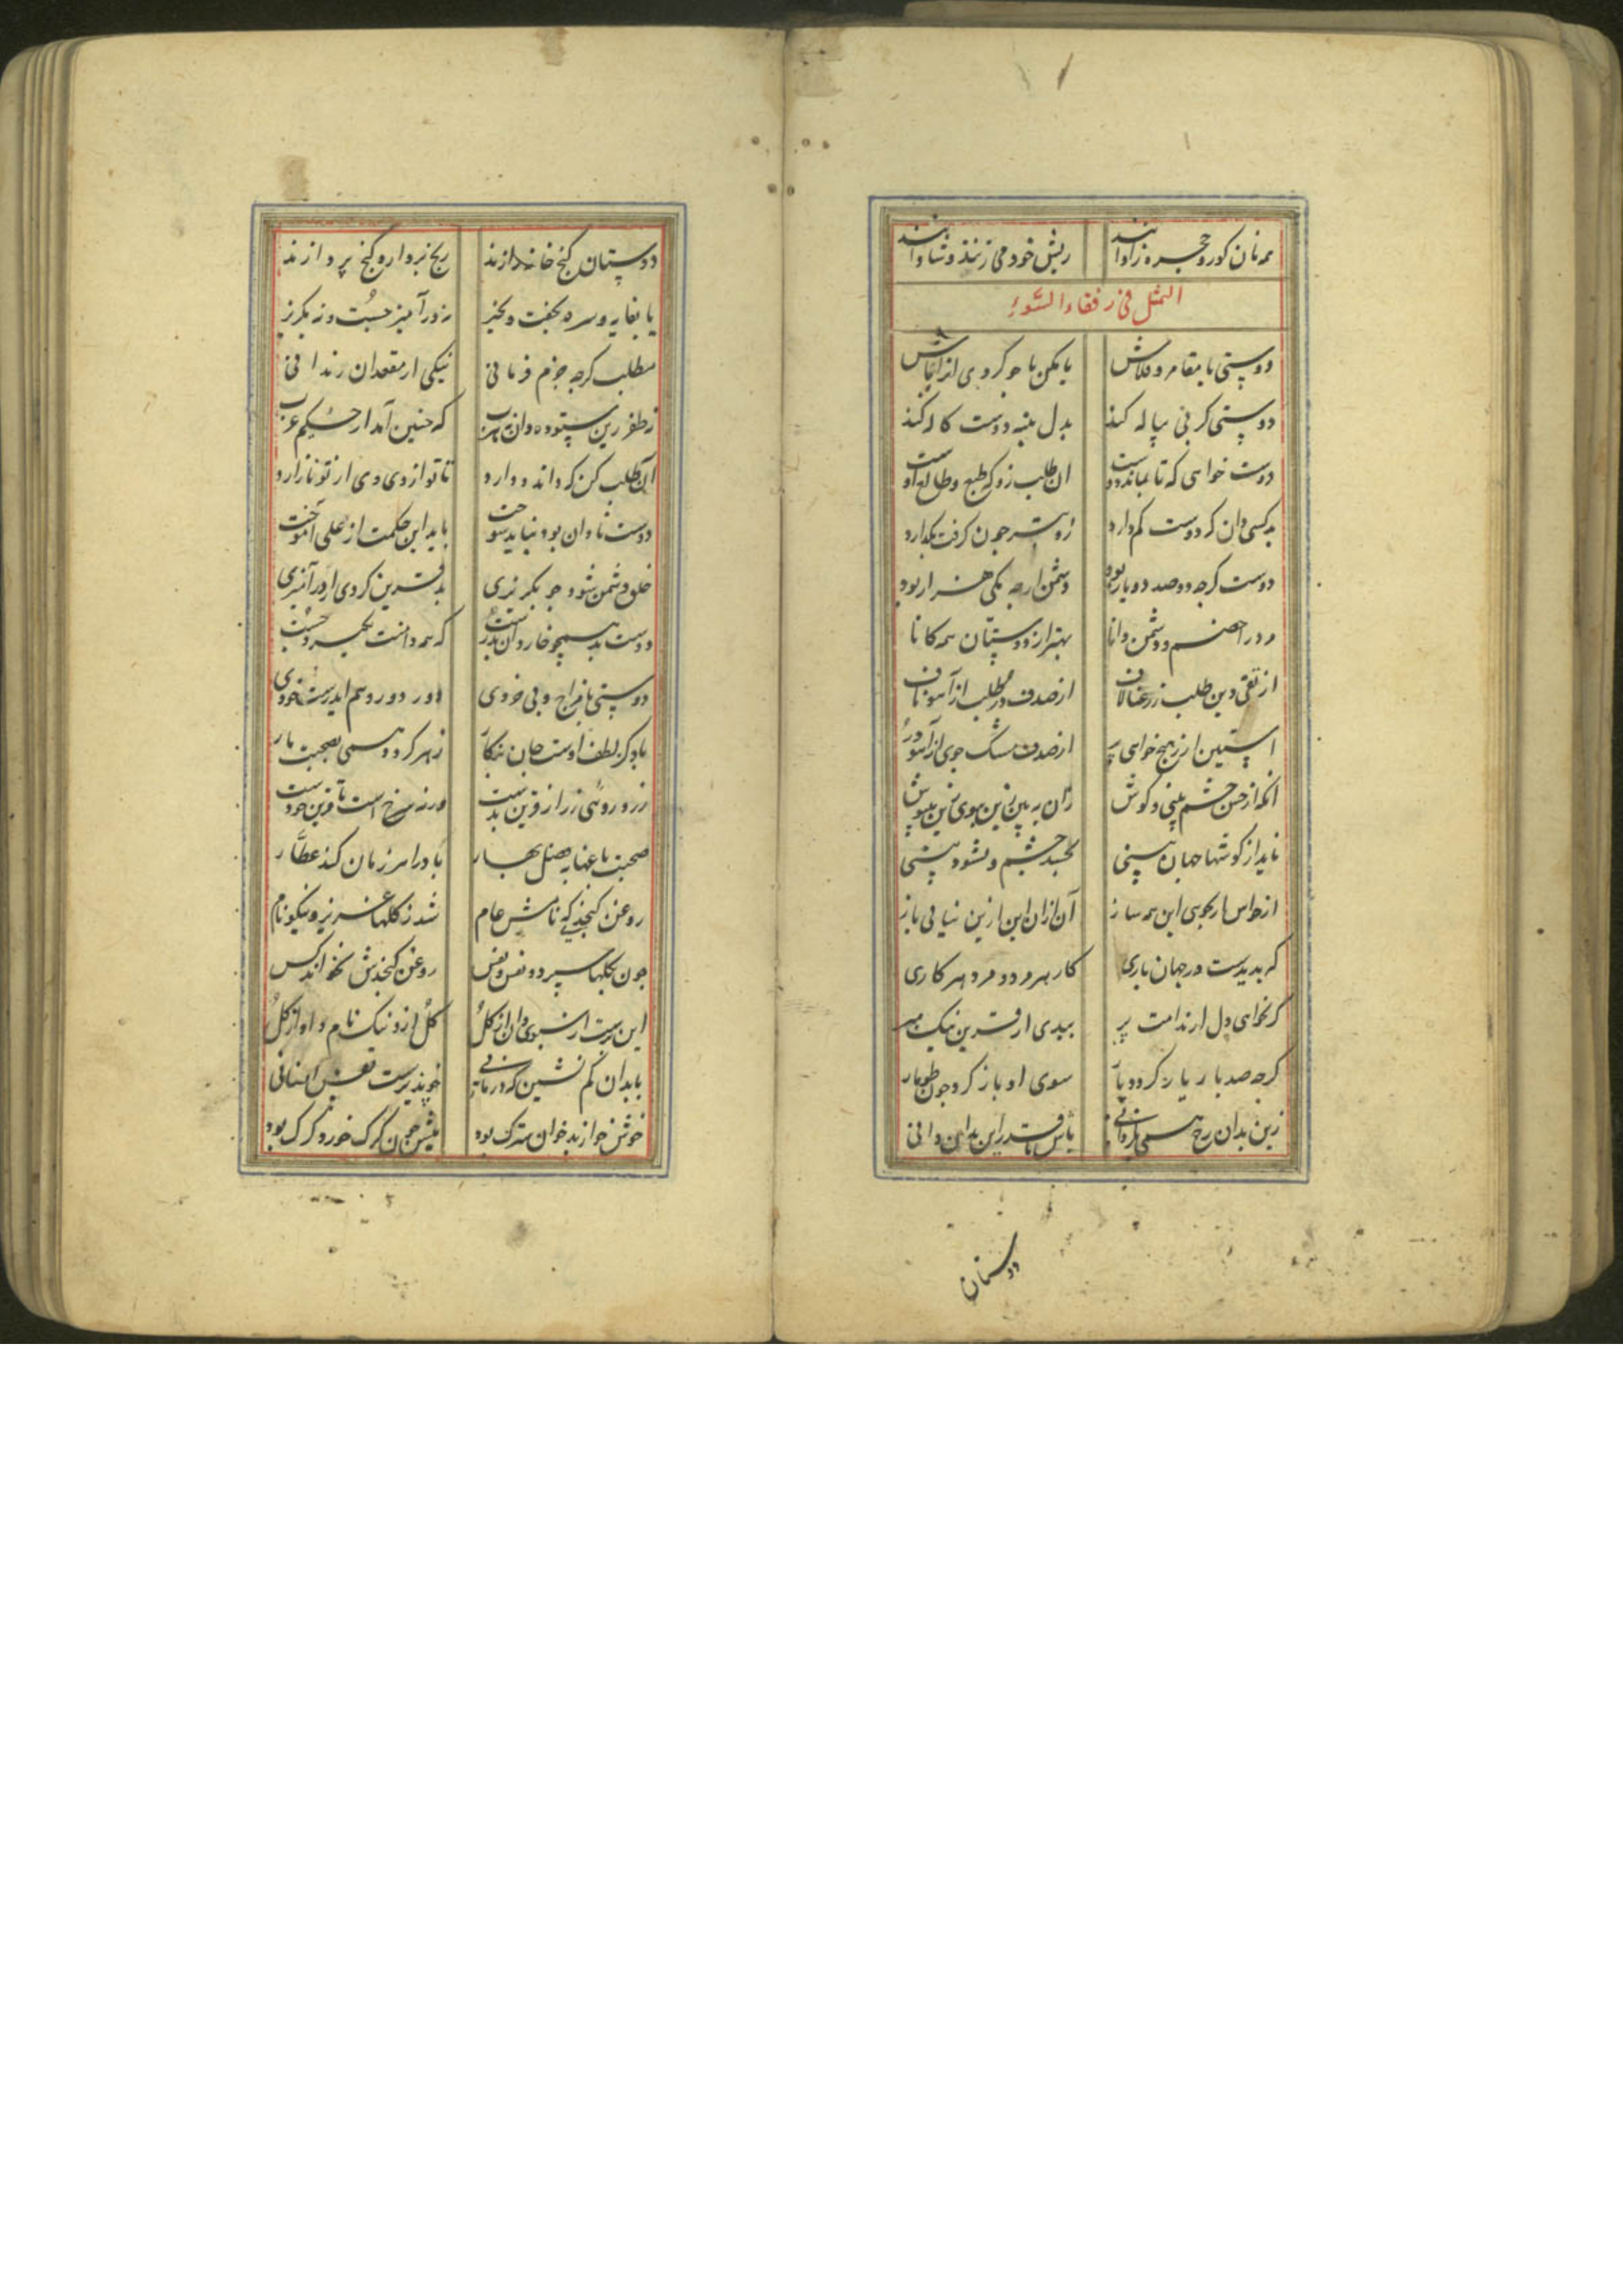 همه نان کور و حجره زاوایند ریش خود می‌زنند و شاوایند
المثل فی رفقاء السوء
دوستی با مقامر و قلاش یا مکن یا چو کردی از آنجا باش
دوستی کز پی پیاله کند بدل پنبه دوست کاله کند
دوست خواهی که تا بماند دوست آن طلب زو که طبع و طالع اوست
بد کسی دان که دوست کم دارد زو بتر چون گرفت بگذارد
دوست گرچه دو صد دو یار بود دشمن ارچه یکی هزار بود
مر ترا خصم و دشمن دانا بهتر از دوستان همه کانا
از تقی دین طلب ز رعنا لاف از صدف در طلب از آهو ناف
آستین ار ز هیچ خواهی پر از صدف مشک جوی از آهو در
آنکه از حسن چشم بینی و گوش زان به بین زین ببوی زین بنیوش
ناید از گوشها جهان بینی نچشد چشم و نشنود بینی
از حواس ار بجویی این همه ساز آن از آن این ازین نیابی باز
که بدیدست در جهان باری کار هر مرد و مرد هر کاری
گر نخواهی دل از ندامت پر ببدی از قرین نیک مبر
گرچه صد بار باز گردد یار سوی او باز گرد چون طومار
زین بدان رخ همی نگردانی باش تا قدر این بدان دانی
دوستان
دوستان گنج خانهٔ رازند رنج بردار و گنج پردازند
با بغا به و سره بخفت و بخیز زود آمیز چست و زود مگریز
مطلب گرچه جرم فرمانی نیکی از مقعدان زندانی
ز ظفر زین ستوده و آن به هرب که چنین آمد از حکیم عرب
آن طلب کن که داند و دارد تا تو از وی و وی از تو نازارد
دوست نادان بود نباید سوخت باید این حکمت از علی آموخت
خلق دشمن شود چو بگریزی بد قرین گردی ار درآمیزی
دوست بد همچو خار دان بدرست که همه دامنت بگیرد چست
دوستی با مزاج و بی خردی داور دور و هم ابدرست خودی
باد کز لطف اوست جان بنگار زهر گردد همی بصحبت مار
زرد رویی زر از قرین بدست ورنه سرخ است تا قرین خودست
صحبت باغها بفصل بهار باد را هر زمان کند عطار
روغن کنجدی که نامش عام شد ز گلها عزیز و نیکونام
چون بگلها سپرد و نفس و نفس روغن کنجدش نخواند کس
این برست از سبوی و آن از گل گل ازو نیک نام و او از گل
با بدان کم نشین که درمانی خو پذیرست نفس انسانی
خوش خو از بدخوان سترگ بود میش چون گرگ خورد گرگ بود